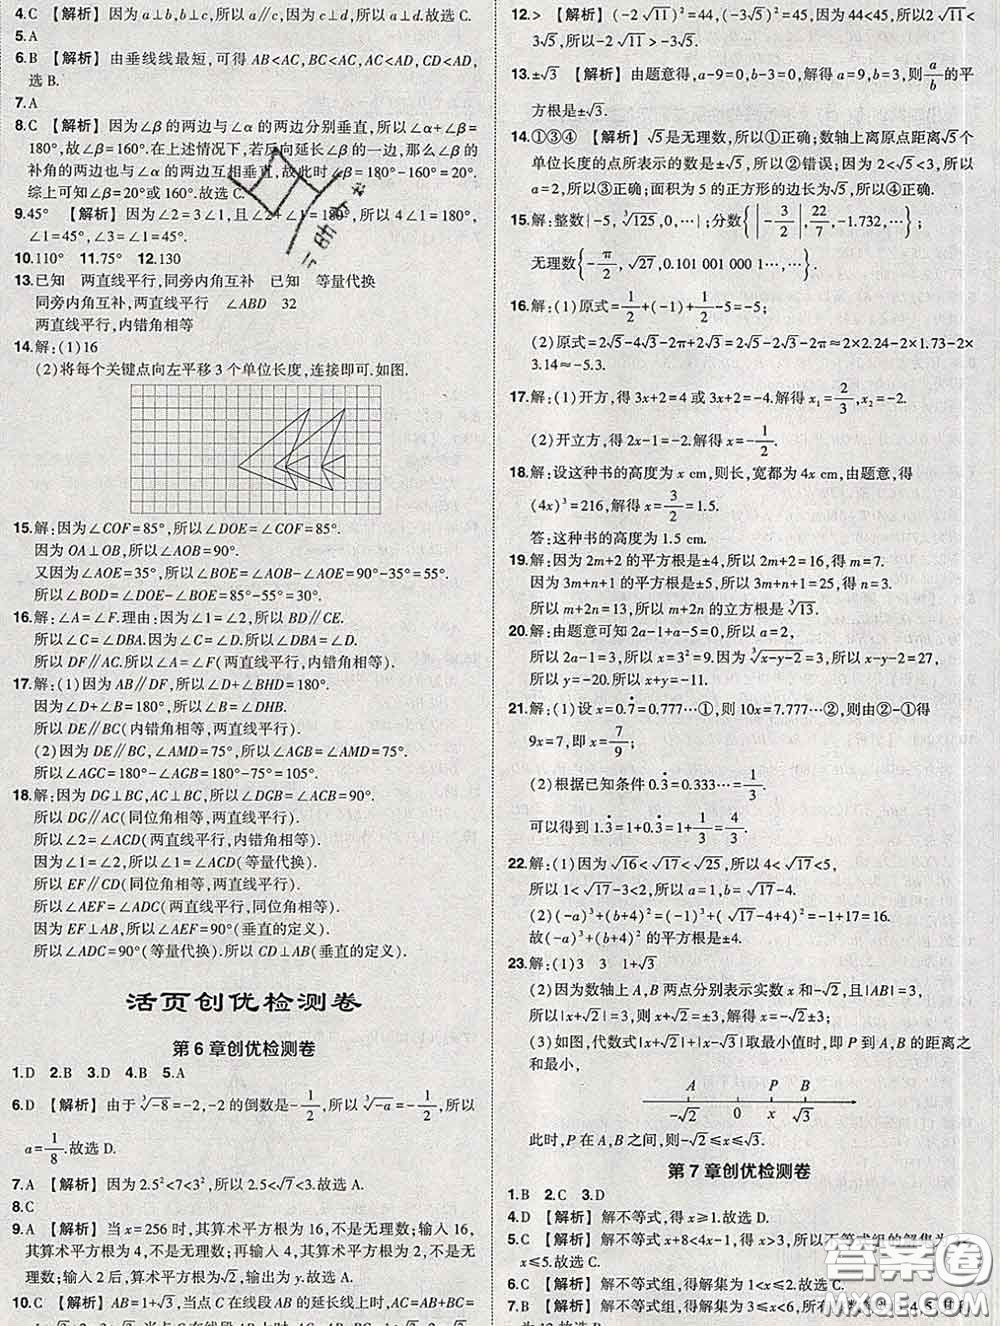 4.C 【解析】因为a⊥b,b⊥c,所以a∥c,因为c⊥d,所以a⊥d.故选C.
5.A
6.B 【解析】由垂线线最短,可得AB<AC,BC<AC,AC<AD,CD<AD,
选B.
7.A
8.C 【解析】因为∠β的两边与∠α的两边分别垂直,所以∠α+∠β=
180°,故∠β=160°.在上述情况下,若反向延长∠β的一边,那么∠β的
补角的两边也与∠α的两边互相垂直,故此时∠β=180°-160°=20°.
综上可知∠β=20°或160°.故选C.
9.45° 【解析】因为∠2=3∠1,且∠2+∠1=180°,所以4∠1=180°,
∠1=45°,∠3=∠1=45°.
10.110° 11.75° 12.130
13.已知 两直线平行,同旁内角互补 已知 等量代换
同旁内角互补,两直线平行 ∠ABD 32
两直线平行,内错角相等
14.解:(1)16
(2)将每个关键点向左平移3个单位长度,连接即可.如图.
15.解:因为∠COF=85°,所以∠DOE=∠COF=85°.
因为OA⊥OB,所以∠AOB=90°.
又因为∠AOE=35°,所以∠BOE=∠AOB-∠AOE=90°-35°=55°.
所以∠BOD=∠DOE-∠BOE=85°-55°=30°.
16.解:∠A=∠F.理由:因为∠1=∠2,所以BD∥CE.
所以∠C=∠DBA.因为∠C=∠D,所以∠DBA=∠D.
所以DF∥AC.所以∠A=∠F(两直线平行,内错角相等).
17.解:(1)因为AB∥DF,所以∠D+∠BHD=180°.
因为∠D+∠B=180°,所以∠B=∠DHB.
所以DE∥BC(内错角相等,两直线平行).
(2)因为DE∥BC,∠AMD=75°,所以∠AGB=∠AMD=75°.
所以∠AGC=180°-∠AGB=180°-75°=105°.
18.解:因为DG⊥BC,AC⊥BC,所以∠DGB=∠ACB=90°.
所以DG∥AC(同位角相等,两直线平行).
所以∠2=∠ACD(两直线平行,内错角相等).
因为∠1=∠2,所以∠1=∠ACD(等量代换).
所以EF∥CD(同位角相等,两直线平行).
所以∠AEF=∠ADC(两直线平行,同位角相等).
因为EF⊥AB,所以∠AEF=90°(垂直的定义).
所以∠ADC=90°(等量代换).所以CD⊥AB(垂直的定义).
活页创优检测卷
第6章创优检测卷
1.D 2.B 3.D 4.B 5.A
6.D 【解析】由于∛-8=-2,-2的倒数是-1/2,所以∛-a=-1/2,所以
a=1/8.故选D.
7.A 【解析】因为2.5²<7<3²,所以2.5<√7<3.故选A.
8.C
9.A 【解析】当x=256时,其算术平方根为16,不是无理数;输入16,
其算术平方根为4,不是无理数;再输入4,其算术平方根为2,不是
无理数;输入2后,算术平方根为√2,是无理数,输出y.故选A.
10.C 【解析】AB=1+√3,当点C在线段AB的延长线上时,AC=AB+
12.> 【解析】(-2√11)²=44,(-3√5)²=45,因为44<45,所以2√11<
3√5,所以-2√11>-3√5.
13.±√3 【解析】由题意得,a-9=0,b-3=0,解得a=9,b=3,则a/b的平
方根是±√3.
14.①③④ 【解析】√5是无理数,所以①正确;数轴上离原点距离√5个
单位长度的点所表示的数是±√5,所以②错误;因为2<√5<3,所以
a=2,所以③正确;面积为5的正方形的边长为√5,所以④正确.
15.解:整数{-5,∛125,0,…};分数{|-3/2|,22/7,-1.732,…};
无理数{-π/2,√27,0.101 001 000 1…,…};
16.解:(1)原式=1/2+(-1)+1/2-5=-5;
(2)原式=2√5-4√3-2π+2√3=2√5-2√3-2π≈2×2.24-2×1.73-2×
3.14≈-5.3.
17.解:(1)开方,得3x+2=4或3x+2=-4.解得x₁=2/3,x₂=-2.
(2)开立方,得2x-1=-2.解得x=-1/2.
18.解:设这种书的高度为x cm,则长,宽都为4x cm,由题意,得
(4x)³=216,解得x=3/2=1.5.
答:这种书的高度为1.5 cm.
19.解:因为2m+2的平方根是±4,所以2m+2=16,得m=7.
因为3m+n+1的平方根是±5,所以3m+n+1=25,得n=3.
所以m+2n=13,所以m+2n的立方根是∛13.
20.解:由题意可知2a-1+a-5=0,所以a=2,
所以2a-1=3,所以x=3²=9.因为∛x-y-2=3,所以x-y-2=27,
所以y=-20.所以x+y=-11.
21.解:(1)设x=0.7̇=0.777…①,则10x=7.777…②,则由②-①得
9x=7,即x=7/9;
(2)根据已知条件0.3̇=0.333…=1/3.
可以得到1.3̇=1+0.3̇=1+1/3=4/3.
22.解:(1)因为√16<√17<√25,所以4<√17<5,
所以1<√17-3<2,所以a=1,b=√17-4.
(2)(-a)³+(b+4)²=(-1)³+(√17-4+4)²=-1+17=16.
故(-a)³+(b+4)²的平方根是±4.
23.解:(1)3 3 1+√3
(2)因为数轴上A,B两点分别表示实数x和-√2,且|AB|=3,
所以|x+√2|=3,则x+√2=±3,解得x=-√2±3;
(3)如图,代数式|x+√2|+|x-√3|取最小值时,即P到A,B的距离之
和最小,
A P B
-√2 0 x √3
此时,P在A,B之间,则-√2≤x≤√3.
第7章创优检测卷
1.B 2.C 3.D
4.D 【解析】解不等式,得x≥1.故选D.
5.C 【解析】解不等式x+8<4x-1,得x>3,所以不等式组的解集为3<
x≤5.故选C.
6.C 【解析】解不等式组,得解集为1<x≤2.故选C.
7.B 【解析】解不等式组,得解集为3≤x<6,所有
答案圈
MXQE.COM